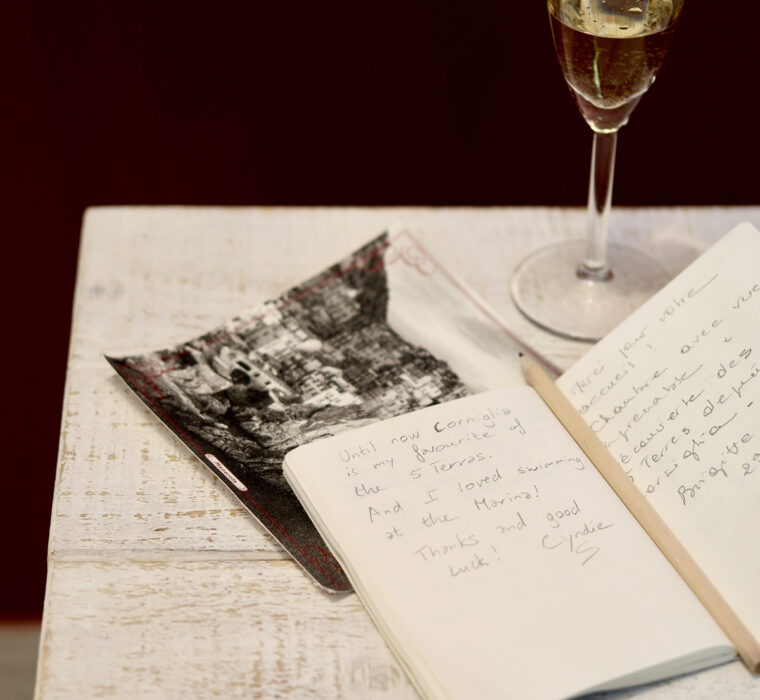 Until now Corniglia
is my favourite of
the 5 Terras.
And I loved swimming
at the Marina!
Thanks and good
Luck! Cyndie
Merci pour votre
accueil!
Chambre avec vue
imprenable &
découverte des
5 Terres depuis
Corniglia -
Brigitte